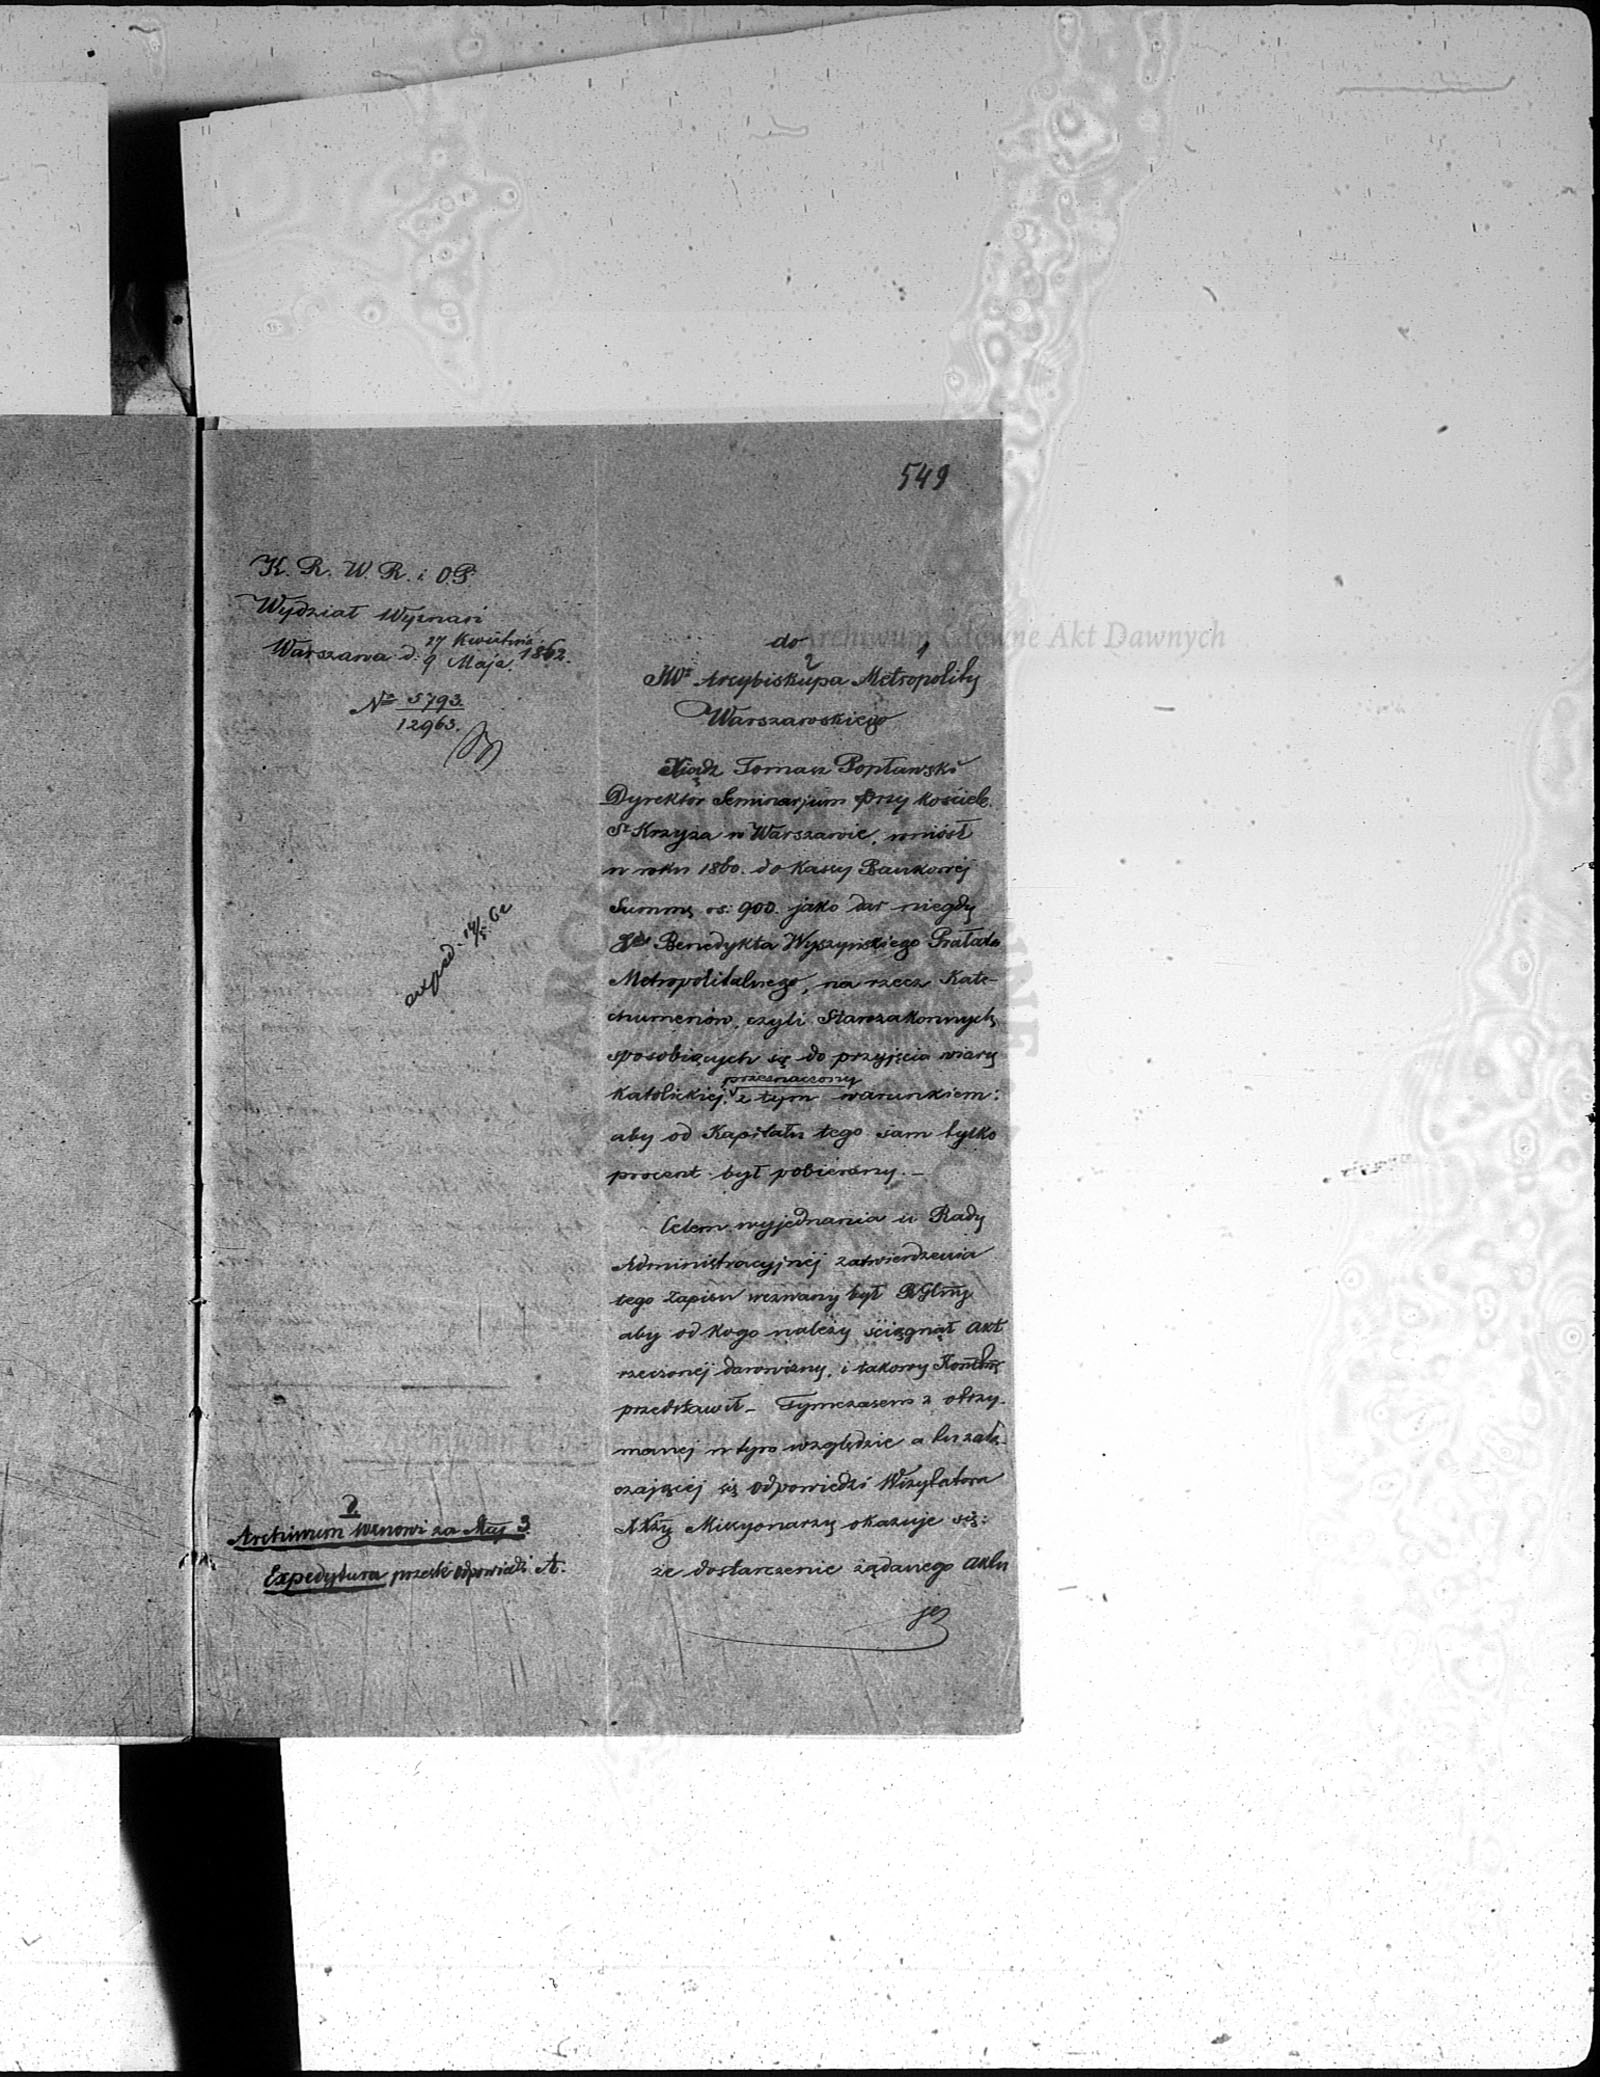 549
K. R. W. R. i O. P.
Wydział Wyznań
27 Kwietnia
Warszawa d. 9 Maja 1862.
No 5793.
12963.
exped. 14/5 62
do
JWo Arcybiskupa Metropolity
Warszawskiego
Xiądz Tomasz Popławski
Dyrektor Seminarjum przy kościele
St Krzyża w Warszawie, wniósł
w roku 1860. do Kassy Bankowej
Summę rs: 900. jako dar niegdy
Benedykta Wyszyńskiego Prałata
Metropolitalnego, na rzecz Kate-
chumenów, czyli Starozakonnych
sposobiących się do przyjęcia wiary
przeznaczony
Katolickiej, z tym warunkiem:
aby od Kapitału tego sam tylko
procent był pobierany. –
Celem wyjednania u Rady
Administracyjnej zatwierdzenia
tego zapisu wezwany był
aby od kogo należy ściągnął akt
rzeczonej darowizny, i takowy
przedstawił – Tymczasem z otrzy-
manej w tym względzie a tu załą-
czającej się odpowiedzi Wizytatora
XXży Missyonarzy okazuje się:
że dostarczenie żądanego aktu
Archiwum wznowi za Mcy 3
Expedytura prześle odpowiedź
Archiwum Główne Akt Dawnych